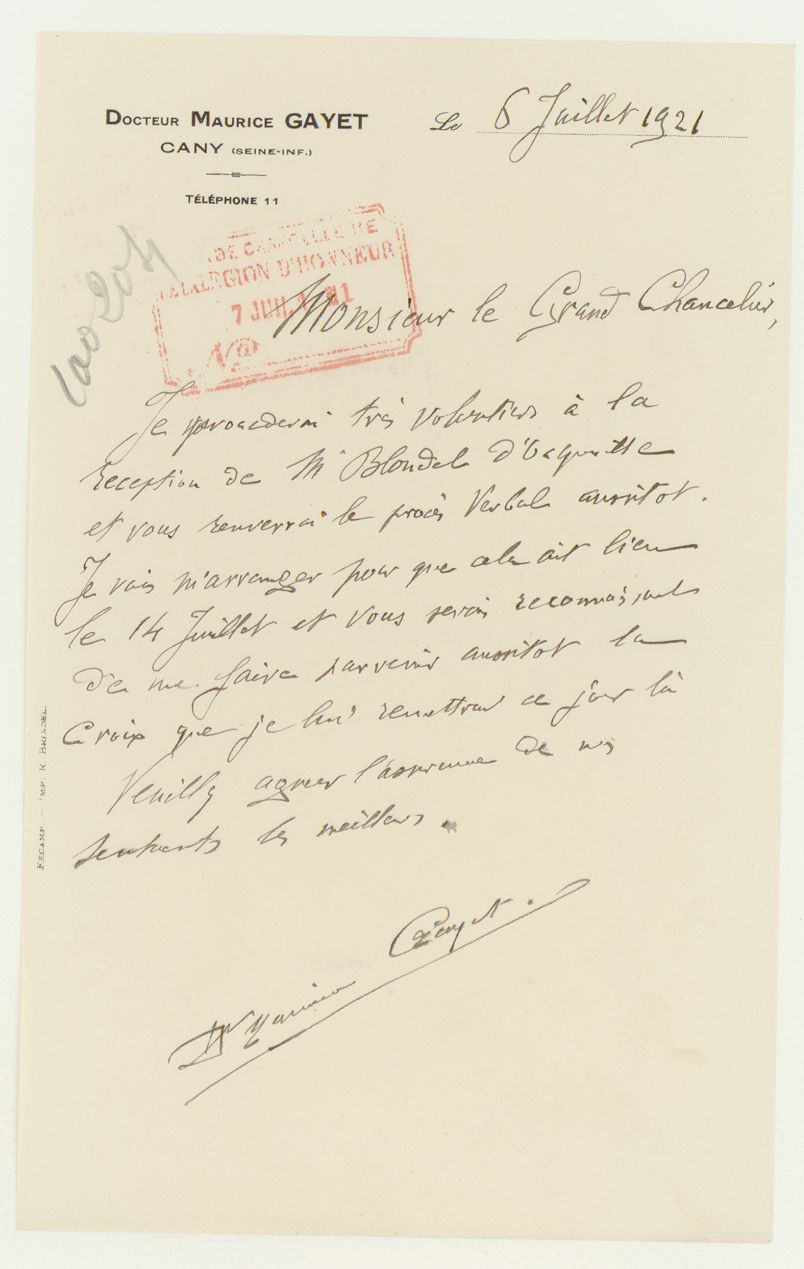 DOCTEUR MAURICE GAYET
CANY (SEINE-INF.)
TÉLÉPHONE 11
Le 6 Juillet 1921
DE CHANCELLERIE
DE LA LÉGION D'HONNEUR
7 JUIL
Monsieur le Grand Chancelier,
Je procederai très volontiers à la
reception de Mr Blondel d'
et vous renverrai le procès verbal aussitot.
Je vais m'arranger pour que cela ait lieu
le 14 Juillet et vous serais reconnaissant
de me faire parvenir aussitot la
Croix que je lui remettrai ce jour là
Veuillez agréer l'assurance de mes
sentiments les meilleurs.
Dr Maurice Gayet.
FÉCAMP. — IMP. R. BRINDEL.